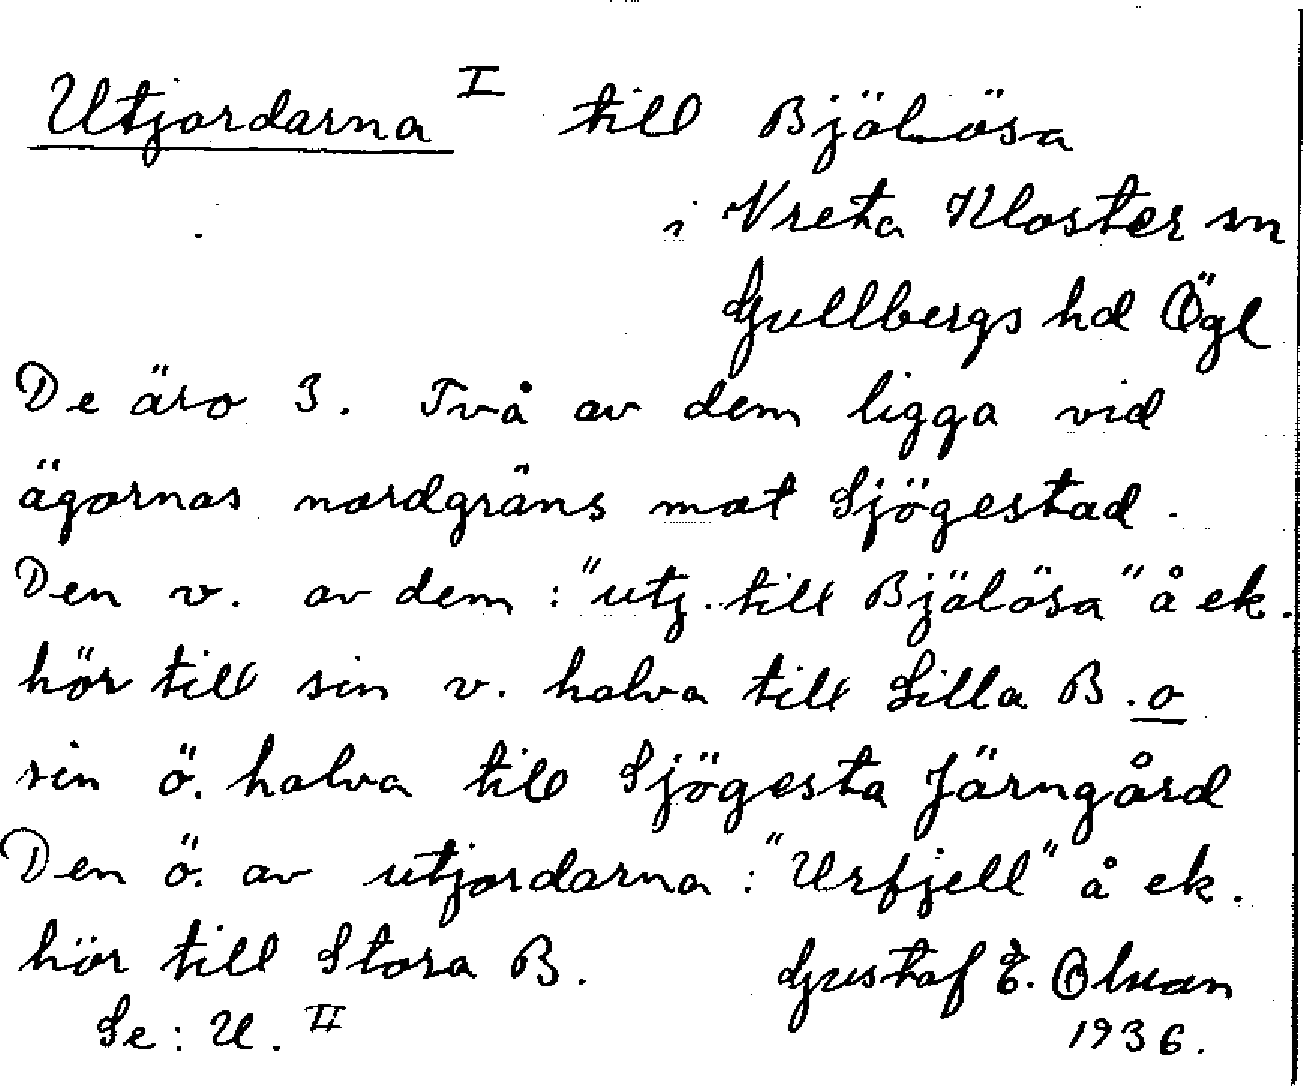 Utjordarna I till Bjälösa
i Vreta Kloster sn
Gullbergs hd Ögl
De äro 3. Två av dem ligga vid
ägornas nordgräns mot Sjögestad.
Den v. av dem: "utj. till Bjälösa" å ek.
hör till sin v. halva till Lilla B. o
sin ö. halva till Sjögesta Järngård
Den ö. av utjordarna: "Urfjell" å ek.
hör till Stora B. Gustaf E. Olsson
Se: U. II 1936.